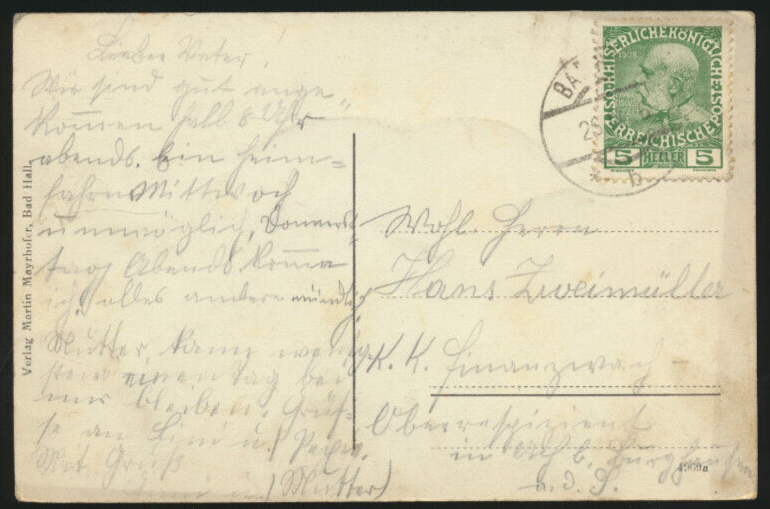 Lieber Vater!
Wir sind gut ange
kommen halb 8 Uhr
abends. Ein heim=
fahrn Mittwoch
unmöglich, Donners=
tag Abends komme
ich, alles andere mündlich
Mutter kann wenig=
stens einen Tag bei
mir bleiben. Grüs=
se an Lini u.
Mit Gruß
u. Mutter
Verlag Martin Mayrhofer, Bad Hall.
KAISERLICHEKÖNIGLICHE
ÖSTERREICHISCHE POST
1908
5 HELLER 5
BAD
26
b
Wohl Herrn
Hans Zweimüller
K. K. Finanzwach-
Oberrespizient
in Ach b. Burghausen
a. d. S.
4909a